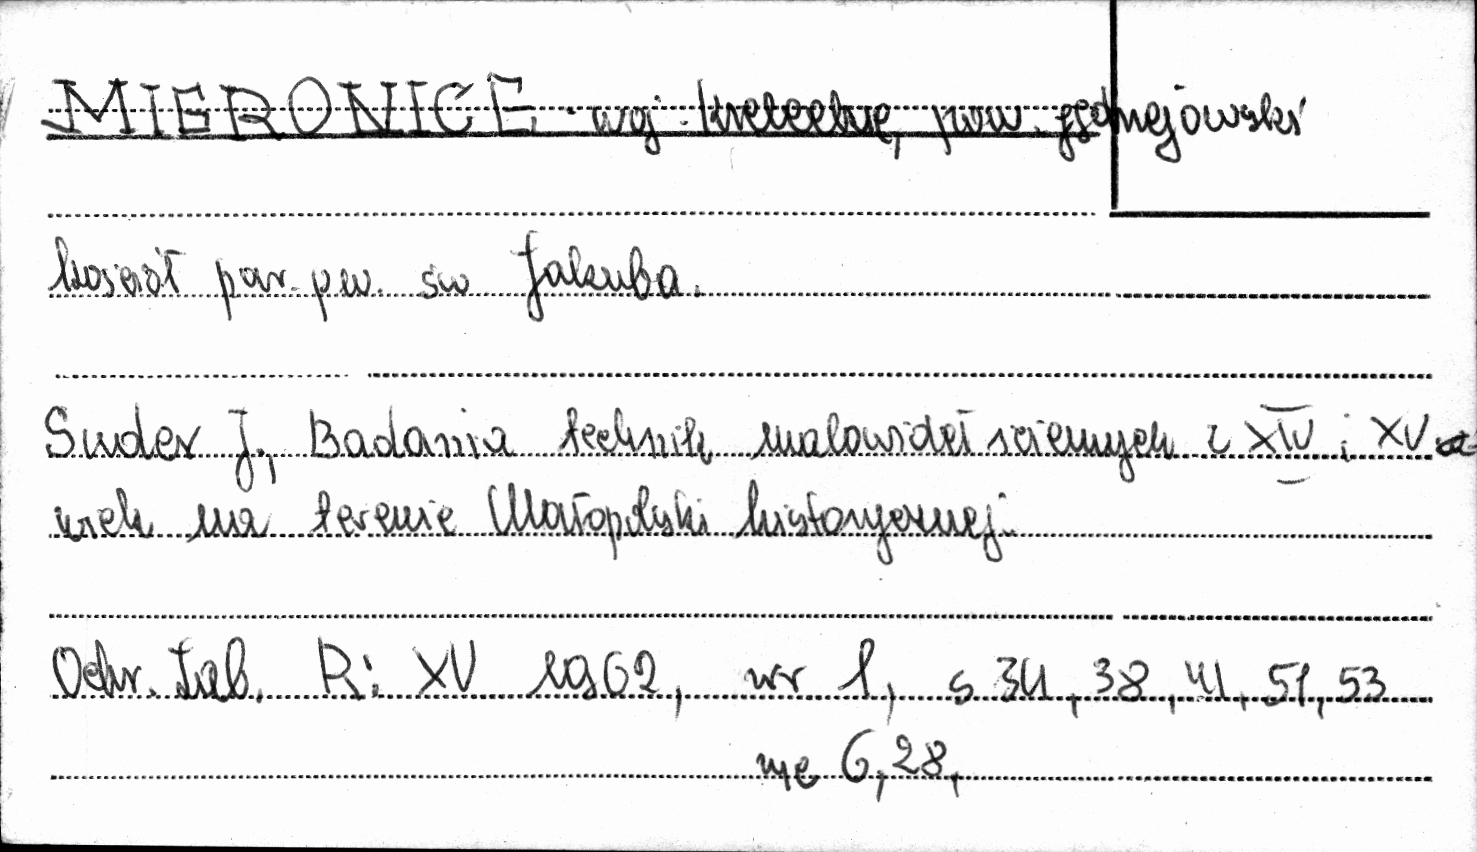 MIERONICE · woj. kieleckie, pow. jędrzejowski
kościół par. pw. św Jakuba.
Suder J., Badania technik malowideł ściennych z XIV i XV
wiek na terenie Małopolski historycznej.
Ochr. Zab. R: XV 1962, nr 1, s 34, 38, 41, 51, 53
ryc 6, 28,